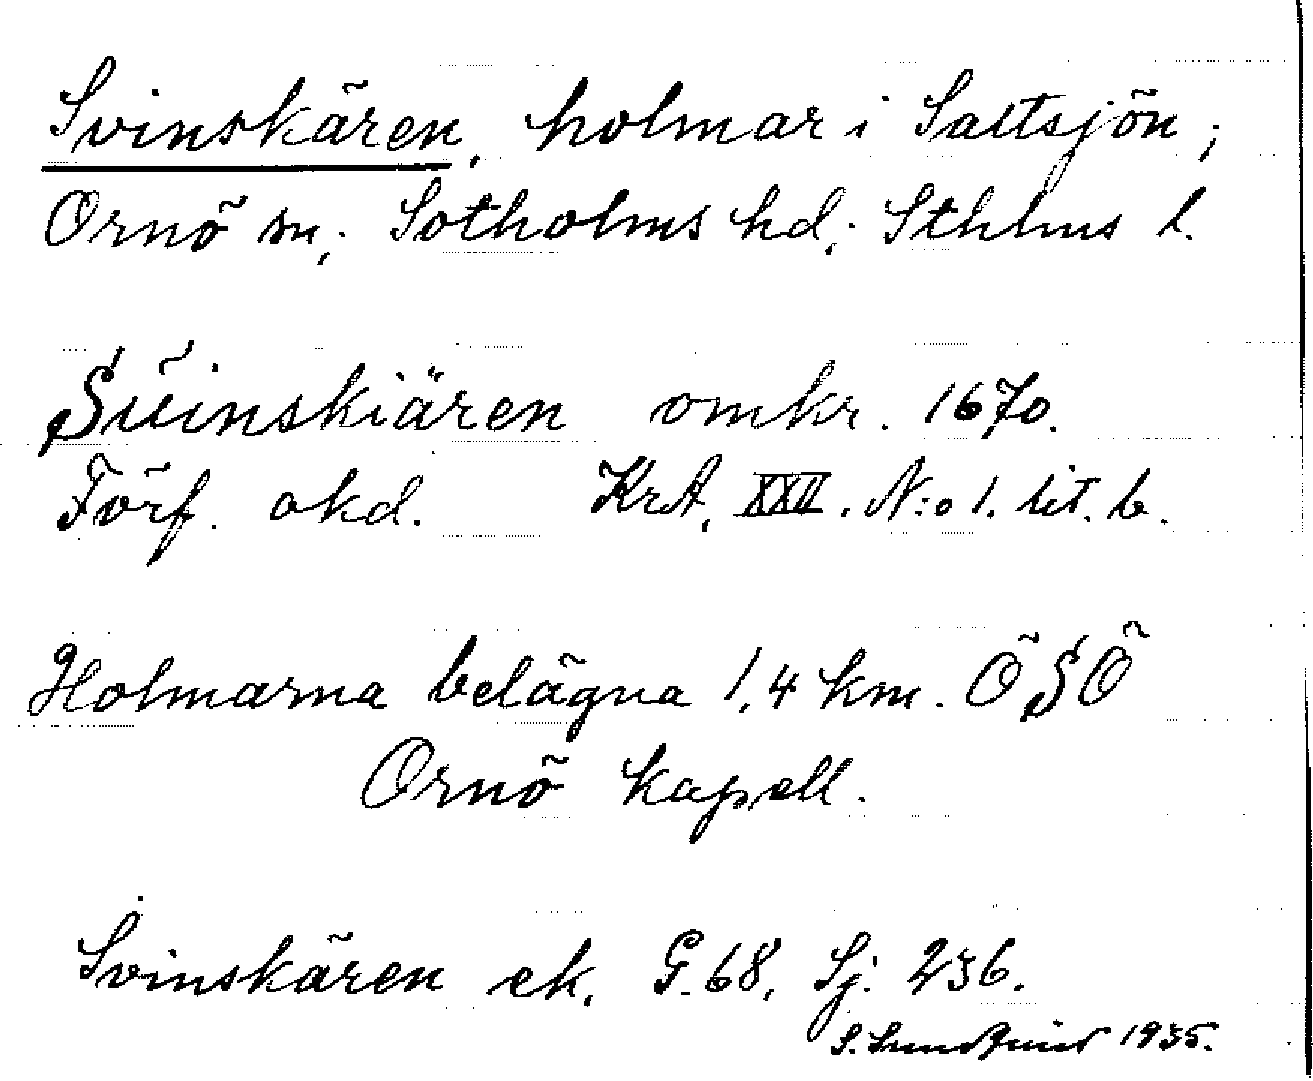 Svinskären, holmar i Saltsjön;
Ornö sn; Sotholms hd; Sthlms l.
Sŭinskiären omkr. 1670.
Förf. okd. KrA, XXII. N:o 1. lit. b.
Holmarna belägna 1,4 km. ÖSÖ
Ornö kapell.
Svinskären ek. G. 68, Sj. 236.
S. Lundquist 1935.